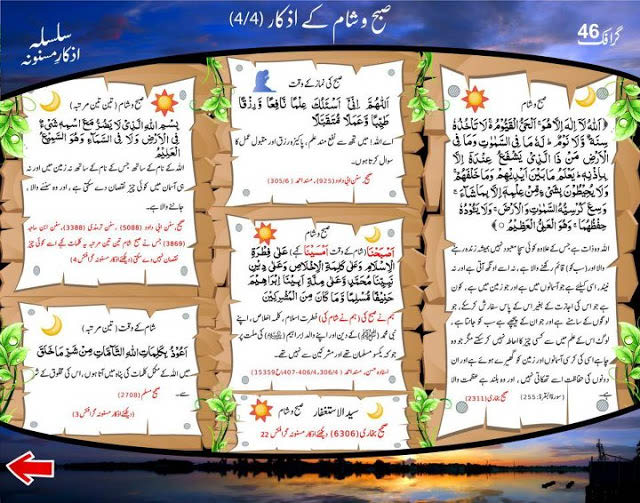 صبح و شام کے اذکار (4/4)
گرافک 46
سلسلہ
اذکارِ مسنونہ
صبح و شام
اَللّٰهُ لَآ اِلٰهَ اِلَّا هُوَ ۚ اَلْحَىُّ الْقَيُّوْمُ ۚ لَا تَاْخُذُهٗ
سِنَةٌ وَّلَا نَوْمٌ ۭ لَهٗ مَا فِي السَّمٰوٰتِ وَمَا فِي
الْاَرْضِ ۭ مَنْ ذَا الَّذِيْ يَشْفَعُ عِنْدَهٗٓ اِلَّا
بِاِذْنِهٖ ۭ يَعْلَمُ مَا بَيْنَ اَيْدِيْهِمْ وَمَا خَلْفَهُمْ ۚ
وَلَا يُحِيْطُوْنَ بِشَيْءٍ مِّنْ عِلْمِهٖٓ اِلَّا بِمَا شَآءَ ۚ
وَسِعَ كُرْسِيُّهُ السَّمٰوٰتِ وَالْاَرْضَ ۚ وَلَا يَئُوْدُهٗ
حِفْظُهُمَا ۚ وَھُوَ الْعَلِيُّ الْعَظِيْمُ
اللہ وہ ذات ہے جس کے علاوہ کوئی سچا معبود نہیں ہمیشہ زندہ رہنے
والا اور (سب کو) قائم رکھنے والا ہے، نہ اسے اونگھ آتی ہے اور نہ
نیند، اسی کیلئے ہے جو آسمانوں میں ہے اور جو زمین میں ہے، کون
ہے جو اس کی اجازت کے بغیر اس کے پاس سفارش کرسکے، جو
لوگوں کے سامنے ہے اور جو اس کے پیچھے ہے سب کو جانتا ہے،
لوگ اس کے علم میں سے کسی چیز کا احاطہ نہیں کر سکتے مگر جو وہ
چاہے اسی کی کرسی آسمانوں اور زمین کو گھیرے ہوئے ہے اور ان
دونوں کی حفاظت اسے تھکاتی نہیں، اور وہ بلند ہے عظمت والا
ہے۔
(سورۃ البقرۃ: 255) صحیح بخاری (2311)
صبح کی نماز کے وقت
اَللّٰهُمَّ اِنِّىْ اَسْئَلُكَ عِلْمًا نَافِعًا وَّرِزْقًا
طَيِّبًا وَّعَمَلًا مُّتَقَبَّلًا
اے اللہ! میں تجھ سے نفع مند علم، پاکیزہ رزق اور مقبول عمل کا
سوال کرتا ہوں۔
صحیح، سنن ابی داود (925)، مسند احمد (305/6)
صبح و شام
اَصْبَحْنَا (شام کے وقت) اَمْسَيْنَا کہے) عَلٰى فِطْرَةِ
الْاِسْلَامِ وَعَلٰى كَلِمَةِ الْاِخْلَاصِ وَعَلٰى دِيْنِ
نَبِيِّنَا مُحَمَّدٍ وَّعَلٰى مِلَّةِ اَبِيْنَا اِبْرَاهِيْمَ
حَنِيْفًا مُّسْلِمًا وَّمَا كَانَ مِنَ الْمُشْرِكِيْنَ
ہم نے صبح کی (ہم نے شام کی) فطرت اسلام، کلمہ اخلاص، اپنے
نبی محمد (ﷺ) کے دین اور اپنے والد ابراہیم (علیہ السلام) کی ملت پر
جو یکسو مسلمان تھے اور مشرکین سے نہیں تھے۔
اسناده حسن، مسند احمد (306/4، 406/4-407، ح15359)
صبح و شام سید الاستغفار
صحیح بخاری (6306) (دیکھئے اذکار مسنونہ گرافکس 22
صبح و شام (تین تین مرتبہ)
بِسْمِ اللهِ الَّذِىْ لَا يَضُرُّ مَعَ اسْمِهٖ شَىْءٌ
فِى الْاَرْضِ وَلَا فِى السَّمَآءِ وَهُوَ السَّمِيْعُ
الْعَلِيْمُ
اللہ کے نام کے ساتھ جس کے نام کے ساتھ نہ زمین میں اور نہ
ہی آسمان میں کوئی چیز نقصان دے سکتی ہے، اور وہ سننے والا،
جاننے والا ہے۔
صحیح، سنن ابی داود (5088)، سنن ترمذی (3388)، سنن ابن ماجہ
(3869) جس نے صبح شام تین تین مرتبہ یہ کلمات کہے اسے کوئی چیز
نقصان نہیں دے سکتی (دیکھئے اذکار مسنونہ گرافکس 4)
شام کے وقت (تین مرتبہ)
اَعُوْذُ بِكَلِمَاتِ اللهِ التَّآمَّاتِ مِنْ شَرِّ مَا خَلَقَ
میں اللہ کے مکمل کلمات کی پناہ میں آتا ہوں، اس کی مخلوق کے شر
سے۔
صحیح مسلم (2708)
(دیکھئے اذکار مسنونہ گرافکس 3)